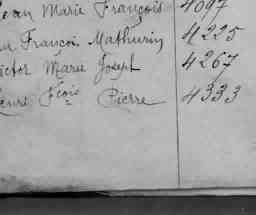 Jean Marie François 4097
François Mathurin 4225
Victor Marie Joseph 4267
Henri Fçois Pierre 4333